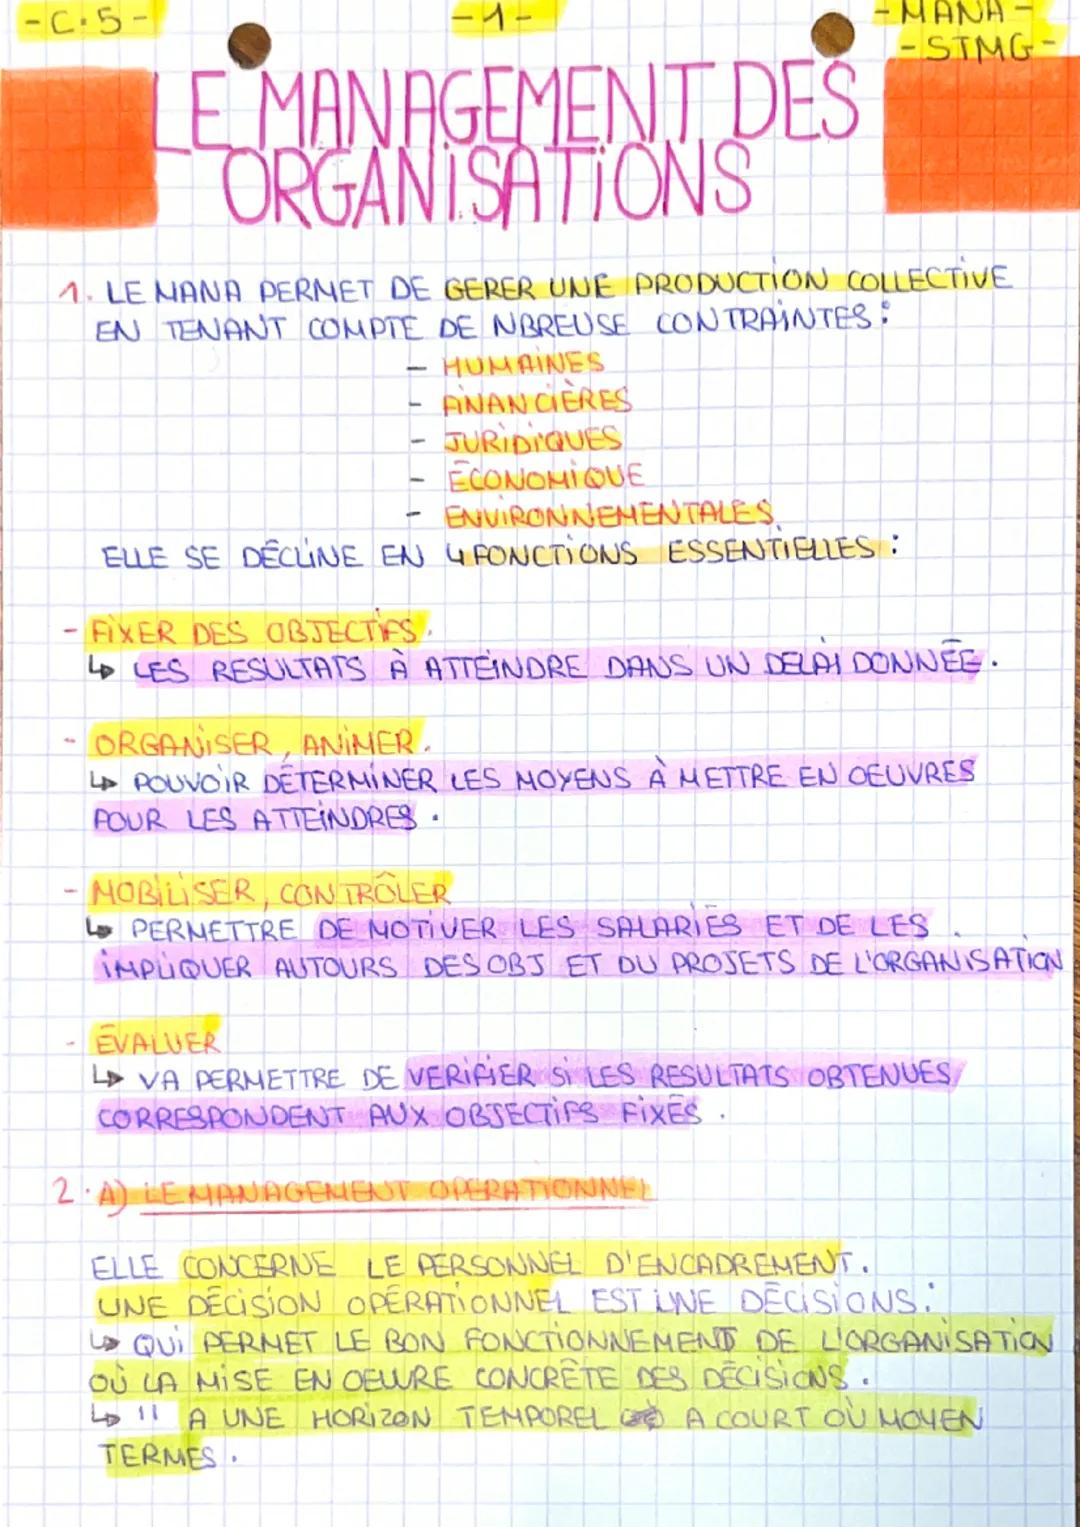 -C.5-
-1-
-MANA-
-STMG-
LE MANAGEMENT DES
ORGANISATIONS
1. LE MANA PERMET DE GERER UNE PRODUCTION COLLECTIVE
EN TENANT COMPTE DE NBREUSE CONTRAINTES :
- HUMAINES
- FINANCIÈRES
- JURIDIQUES
- ÉCONOMIQUE
- ENVIRONNEMENTALES.
ELLE SE DÉCLINE EN 4 FONCTIONS ESSENTIELLES :
- FIXER DES OBJECTIFS.
↳ LES RESULTATS À ATTEINDRE DANS UN DELAI DONNÉE.
- ORGANISER, ANIMER.
↳ POUVOIR DÉTERMINER LES MOYENS À METTRE EN OEUVRES
POUR LES ATTEINDRES.
- MOBILISER, CONTRÔLER
↳ PERMETTRE DE MOTIVER LES SALARIÉS ET DE LES
IMPLIQUER AUTOURS DES OBJ ET DU PROJETS DE L'ORGANISATION
- ÉVALUER
↳ VA PERMETTRE DE VERIFIER SI LES RESULTATS OBTENUES
CORRESPONDENT AUX OBJECTIFS FIXÉS.
2. A) LE MANAGEMENT OPERATIONNEL
ELLE CONCERNE LE PERSONNEL D'ENCADREMENT.
UNE DÉCISION OPÉRATIONNEL EST UNE DÉCISIONS :
↳ QUI PERMET LE BON FONCTIONNEMENT DE L'ORGANISATION
OÙ LA MISE EN OEUVRE CONCRÊTE DES DÉCISIONS.
↳ " A UNE HORIZON TEMPOREL A COURT OÙ MOYEN
TERMES.